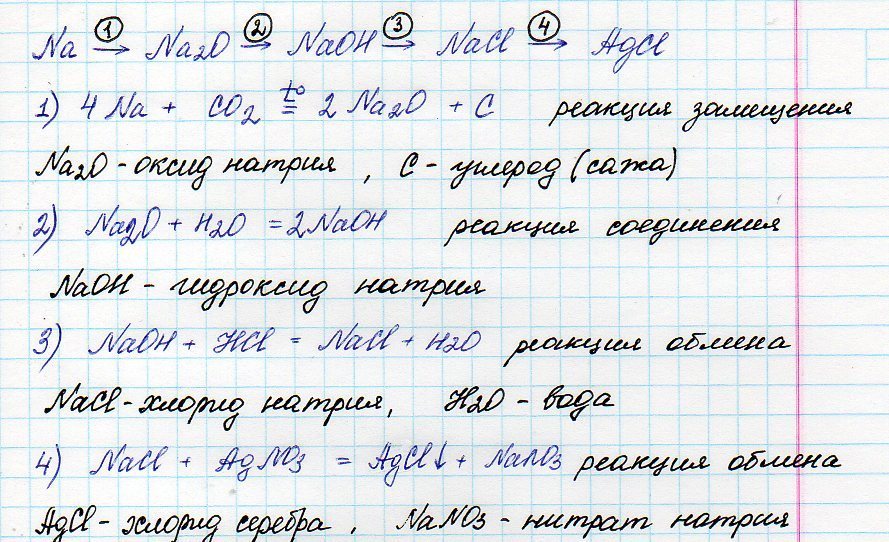 Na ① → Na₂O ② → NaOH ③ → NaCl ④ → AgCl
1) 4 Na + CO₂ t° = 2 Na₂O + C реакция замещения
Na₂O - оксид натрия, С - углерод (сажа)
2) Na₂O + H₂O = 2NaOH реакция соединения
NaOH - гидроксид натрия
3) NaOH + HCl = NaCl + H₂O реакция обмена
NaCl - хлорид натрия, H₂O - вода
4) NaCl + AgNO₃ = AgCl↓ + NaNO₃ реакция обмена
AgCl - хлорид серебра, NaNO₃ - нитрат натрия